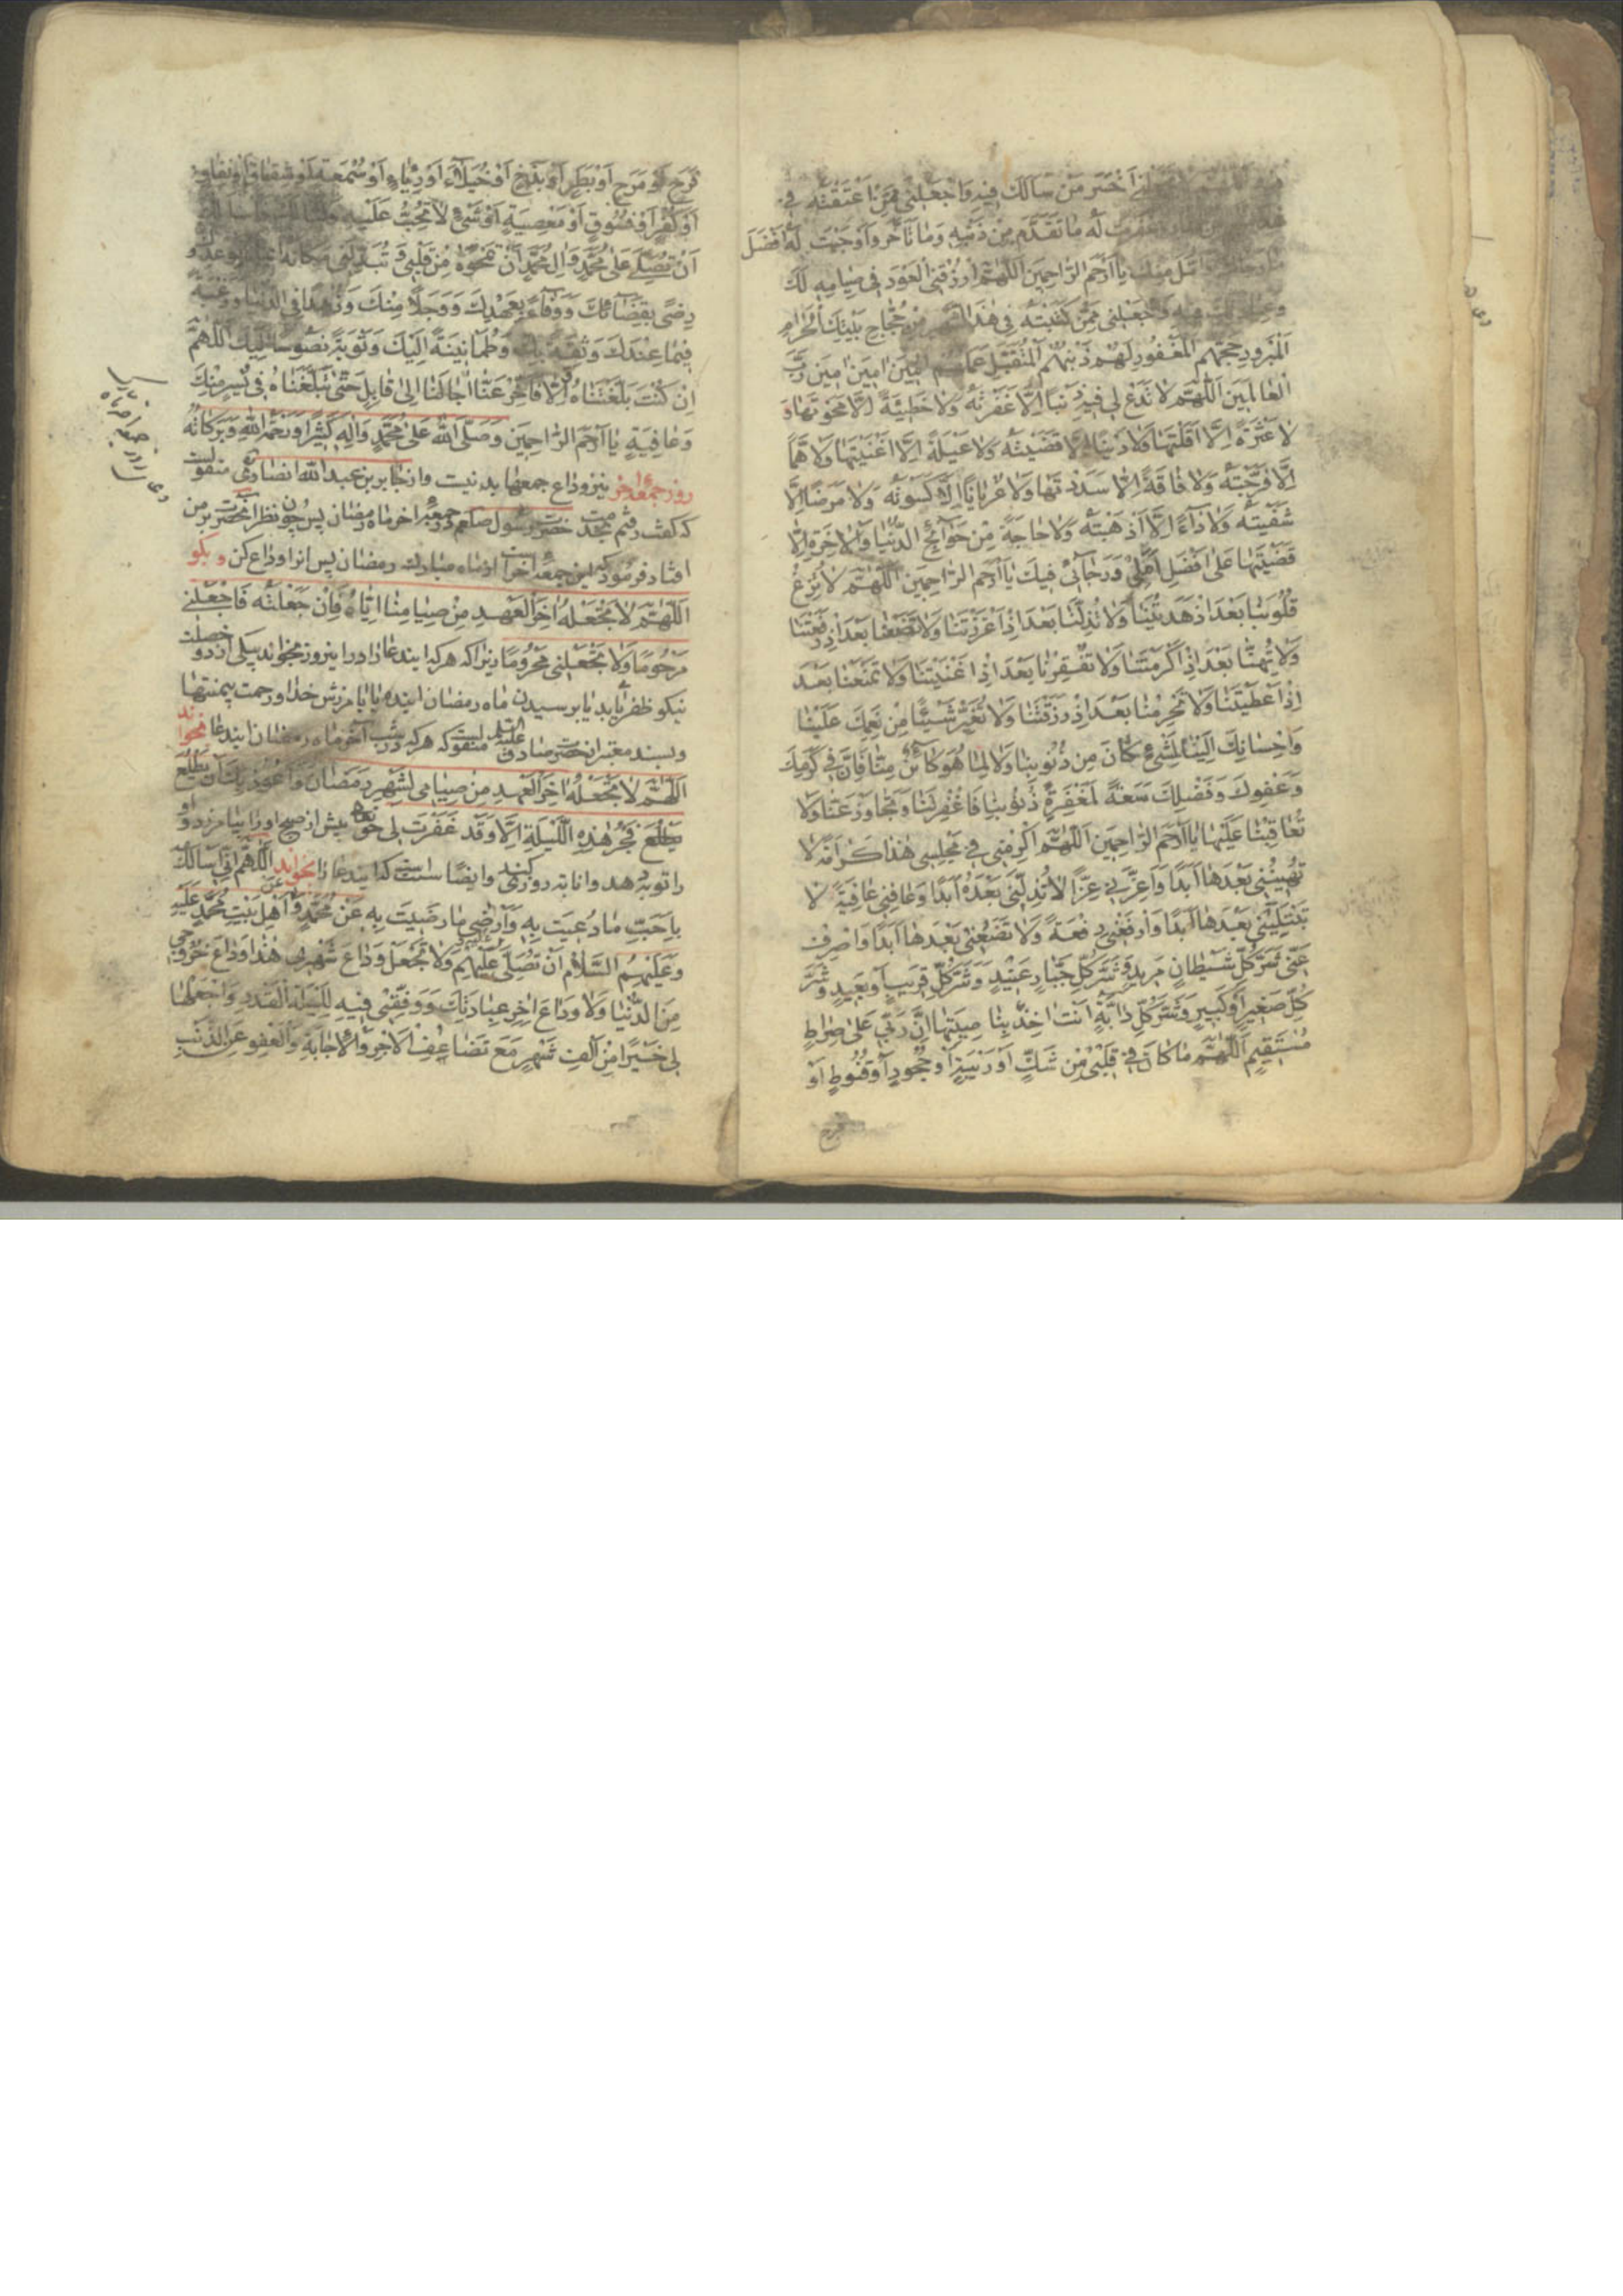 اَخْسَرَ مَنْ سَاَلَكَ فِيهِ وَاجْعَلْنِي مِمَّنْ اَعْتَقْتَهُ فِي
غَفَرْتَ لَهُ مَا تَقَدَّمَ مِنْ ذَنْبِهِ وَمَا تَاَخَّرَ وَاَوْجَبْتَ لَهُ اَفْضَلَ
يَا اَرْحَمَ الرَّاحِمِينَ اَللّٰهُمَّ ارْزُقْنِي الْعَوْدَ فِي صِيَامِهِ لَكَ
وَاجْعَلْنِي مِمَّنْ كَتَبْتَهُ فِي هٰذَا الشَّهْرِ مِنْ حُجَّاجِ بَيْتِكَ الْحَرَامِ
الْمَبْرُورِ حَجُّهُمْ الْمَغْفُورِ لَهُمْ ذَنْبُهُمْ الْمُتَقَبَّلِ عَمَلُهُمْ اٰمِينَ اٰمِينَ اٰمِينَ رَبَّ
الْعَالَمِينَ اَللّٰهُمَّ لَا تَدَعْ لِي فِيهِ ذَنْبًا اِلَّا غَفَرْتَهُ وَلَا خَطِيئَةً اِلَّا مَحَوْتَهَا وَ
لَا عَثْرَةً اِلَّا اَقَلْتَهَا وَلَا دَيْنًا اِلَّا قَضَيْتَهُ وَلَا عَيْلَةً اِلَّا اَغْنَيْتَهَا وَلَا هَمًّا
اِلَّا فَرَّجْتَهُ وَلَا فَاقَةً اِلَّا سَدَدْتَهَا وَلَا عُرْيَانًا اِلَّا كَسَوْتَهُ وَلَا مَرَضًا اِلَّا
شَفَيْتَهُ وَلَا دَاءً اِلَّا اَذْهَبْتَهُ وَلَا حَاجَةً مِنْ حَوَائِجِ الدُّنْيَا وَالْاٰخِرَةِ اِلَّا
قَضَيْتَهَا عَلٰى اَفْضَلِ اَمَلِي وَرَجَائِي فِيكَ يَا اَرْحَمَ الرَّاحِمِينَ اَللّٰهُمَّ لَا تُزِغْ
قُلُوبَنَا بَعْدَ اِذْ هَدَيْتَنَا وَلَا تُذِلَّنَا بَعْدَ اِذْ اَعْزَزْتَنَا وَلَا تَضَعْنَا بَعْدَ اِذْ رَفَعْتَنَا
وَلَا تُهِنَّا بَعْدَ اِذْ اَكْرَمْتَنَا وَلَا تُفْقِرْنَا بَعْدَ اِذْ اَغْنَيْتَنَا وَلَا تَمْنَعْنَا بَعْدَ
اِذْ اَعْطَيْتَنَا وَلَا تَحْرِمْنَا بَعْدَ اِذْ رَزَقْتَنَا وَلَا تُغَيِّرْ شَيْئًا مِنْ نِعَمِكَ عَلَيْنَا
وَاِحْسَانِكَ اِلَيْنَا لِشَيْءٍ كَانَ مِنْ ذُنُوبِنَا وَلَا لِمَا هُوَ كَائِنٌ مِنَّا فَاِنَّ فِي كَرَمِكَ
وَعَفْوِكَ وَفَضْلِكَ سَعَةً لِمَغْفِرَةِ ذُنُوبِنَا فَاغْفِرْ لَنَا وَتَجَاوَزْ عَنَّا وَلَا
تُعَاقِبْنَا عَلَيْهَا يَا اَرْحَمَ الرَّاحِمِينَ اَللّٰهُمَّ اَكْرِمْنِي فِي مَجْلِسِي هٰذَا كَرَامَةً لَا
تُهِينُنِي بَعْدَهَا اَبَدًا وَاَعِزَّنِي عِزًّا لَا تُذِلُّنِي بَعْدَهُ اَبَدًا وَعَافِنِي عَافِيَةً لَا
تَبْتَلِينِي بَعْدَهَا اَبَدًا وَارْفَعْنِي رِفْعَةً وَلَا تَضَعْنِي بَعْدَهَا اَبَدًا وَاصْرِفْ
عَنِّي شَرَّ كُلِّ شَيْطَانٍ مَرِيدٍ وَشَرَّ كُلِّ جَبَّارٍ عَنِيدٍ وَشَرَّ كُلِّ قَرِيبٍ اَوْ بَعِيدٍ وَشَرَّ
كُلِّ صَغِيرٍ اَوْ كَبِيرٍ وَشَرَّ كُلِّ دَابَّةٍ اَنْتَ اٰخِذٌ بِنَاصِيَتِهَا اِنَّ رَبِّي عَلٰى صِرَاطٍ
مُسْتَقِيمٍ اَللّٰهُمَّ مَا كَانَ فِي قَلْبِي مِنْ شَكٍّ اَوْ رَيْبَةٍ اَوْ جُحُودٍ اَوْ قُنُوطٍ اَوْ
فرح
فَرَحٍ اَوْ مَرَحٍ اَوْ بَطَرٍ اَوْ بَذَخٍ اَوْ خُيَلَاءَ اَوْ رِيَاءٍ اَوْ سُمْعَةٍ اَوْ شِقَاقٍ اَوْ نِفَاقٍ
اَوْ كُفْرٍ اَوْ فُسُوقٍ اَوْ مَعْصِيَةٍ اَوْ شَيْءٍ لَا تُحِبُّ عَلَيْهِ
اَنْ تُصَلِّيَ عَلٰى مُحَمَّدٍ وَاٰلِ مُحَمَّدٍ اَنْ تَمْحُوَهُ مِنْ قَلْبِي وَتُبَدِّلَنِي مَكَانَهُ
رِضًى بِقَضَائِكَ وَوَفَاءً بِعَهْدِكَ وَوَجَلًا مِنْكَ وَزُهْدًا فِي الدُّنْيَا وَرَغْبَةً
فِيمَا عِنْدَكَ وَثِقَةً بِكَ وَطُمَأْنِينَةً اِلَيْكَ وَتَوْبَةً نَصُوحًا اِلَيْكَ اَللّٰهُمَّ
اِنْ كُنْتَ بَلَّغْتَنَاهُ وَاِلَّا فَاَخِّرْ عَنَّا اٰجَالَنَا اِلٰى قَابِلٍ حَتّٰى تُبَلِّغَنَاهُ فِي يُسْرٍ مِنْكَ
وَعَافِيَةٍ يَا اَرْحَمَ الرَّاحِمِينَ وَصَلَّى اللّٰهُ عَلٰى مُحَمَّدٍ وَاٰلِهِ كَثِيرًا وَرَحْمَةُ اللّٰهِ وَبَرَكَاتُهُ
روز جمعهٔ آخر نیز وداع جمعها بد نیست و از جابر بن عبدالله انصاری منقولست
که گفت رفتم بخدمت حضرت رسول صلعم در جمعهٔ آخر ماه رمضان پس چون نظر آنحضرت بر من
افتاد فرمود که این جمعهٔ آخر است از ماه مبارک رمضان پس آنرا وداع کن و بگو
اَللّٰهُمَّ لَا تَجْعَلْهُ اٰخِرَ الْعَهْدِ مِنْ صِيَامِنَا اِيَّاهُ فَاِنْ جَعَلْتَهُ فَاجْعَلْنِي
مَرْحُومًا وَلَا تَجْعَلْنِي مَحْرُومًا زیرا که هر که ایندعا را در اینروز بخواند بیکی از دو خصلت
نیکو ظفر یابد یا برسیدن ماه رمضان آینده یا بامرزش خدا و رحمت بی‌منتها
و بسند معتبر از حضرت صادق علیه السلم منقولست که هر که در شب آخر ماه رمضان ایندعا بخواند
اَللّٰهُمَّ لَا تَجْعَلْهُ اٰخِرَ الْعَهْدِ مِنْ صِيَامِي لِشَهْرِ رَمَضَانَ وَاَعُوذُ بِكَ اَنْ يَطْلُعَ
يَطْلُعَ فَجْرُ هٰذِهِ اللَّيْلَةِ اِلَّا وَقَدْ غَفَرْتَ لِي حق تعالی پیش از صبح او را بیامرزد و او
را توبه دهد و انابه روزی کند و ایضا سنت است که ایندعا را بخواند اَللّٰهُمَّ اِنِّي اَسْاَلُكَ
بِاَحَبِّ مَا دُعِيتَ بِهِ وَاَرْضٰى مَا رَضِيتَ بِهِ عَنْ مُحَمَّدٍ وَعَنْ اَهْلِ بَيْتِ مُحَمَّدٍ عَلَيْهِ
وَعَلَيْهِمُ السَّلَامُ اَنْ تُصَلِّيَ عَلَيْهِمْ وَلَا تَجْعَلْ وَدَاعَ شَهْرِي هٰذَا وَدَاعَ خُرُوجِي
مِنَ الدُّنْيَا وَلَا وَدَاعَ اٰخِرِ عِبَادَتِكَ وَوَفِّقْنِي فِيهِ لِلَيْلَةِ الْقَدْرِ وَاجْعَلْهَا
لِي خَيْرًا مِنْ اَلْفِ شَهْرٍ مَعَ تَضَاعُفِ الْاَجْرِ وَالْاِجَابَةِ وَالْعَفْوِ عَنِ الذَّنْبِ